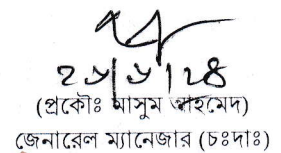 ২৬/৬/২৪
(প্রকৌঃ মাসুম আহমেদ)
জেনারেল ম্যানেজার (চঃদাঃ)